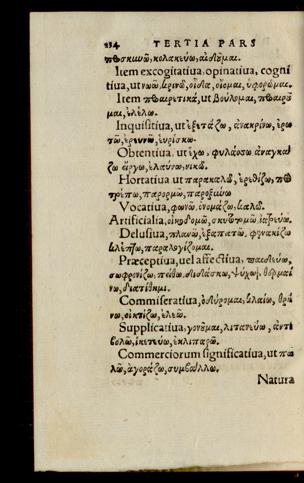 234 TERTIA PARS
προσκυνῶ, κολακεύω, αἰδοῦμαι.
Item excogitatiua, opinatiua, cogni
tiua, ut νοῶ, κρινῶ, οἶδα, οἴομαι, ὑφορῶμαι.
Item προαιρετικά, ut βούλομαι, προαιροῦ
μαι, ἐθέλω.
Inquisitiua, ut ἐξετάζω, ἀνακρίνω, ἐρω
τῶ, ἐρευνῶ, εὑρίσκω.
Obtentiua, ut ἔχω, φυλάσσω ἀναγκά
ζω εἴργω, ἐλαύνω, νικῶ.
Hortatiua ut παρακαλῶ, ἐρεθίζω, προ
τρέπω, παρορμῶ, παροξύνω
Vocatiua, φωνῶ, ὀνομάζω, καλῶ.
Artificialia, οἰκοδομῶ, σκυτοτομῶ, ἰατρεύω.
Delusiua, πλανῶ, ἐξαπατῶ, φενακίζω
κλέπτω, παραλογίζομαι.
Præceptiua, uel affectiua, παιδεύω,
σωφρονίζω, πείθω, διδάσκω, ψύχω, θερμαί
νω, διατίθημι.
Commiseratiua, ὀδύρομαι, κλαίω, θρη
νω, οἰκτίζω, ἐλεῶ.
Supplicatiua, γονοῦμαι, λιτανεύω, ἀντι
βολῶ, ἱκετεύω, ἐκλιπαρῶ.
Commerciorum significatiua, ut πω
λῶ, ἀγοράζω, συμβάλλω.
Natura